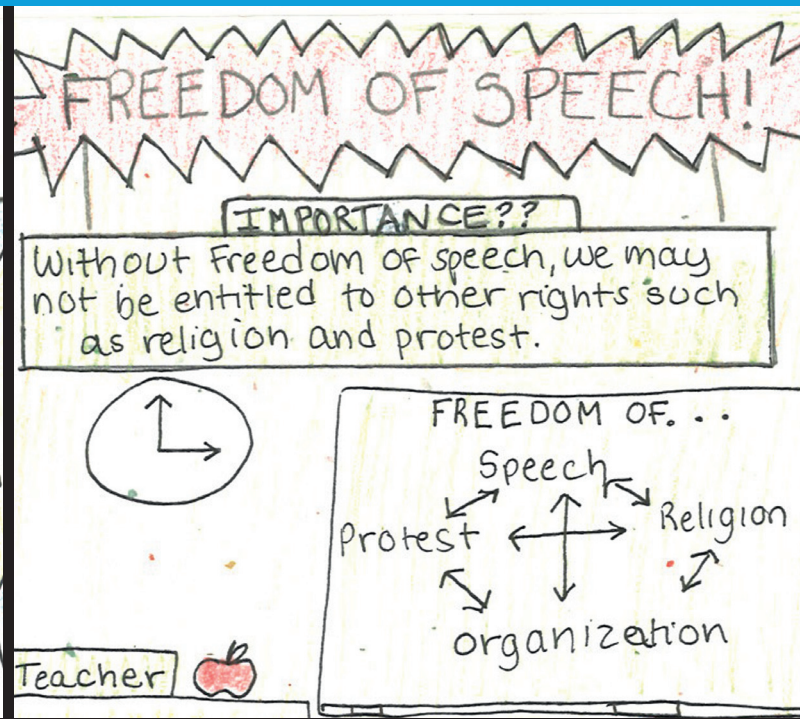 FREEDOM OF SPEECH!
IMPORTANCE??
Without Freedom of speech, we may
not be entitled to other rights such
as religion and protest.
FREEDOM OF...
Speech
Protest
Religion
organization
Teacher